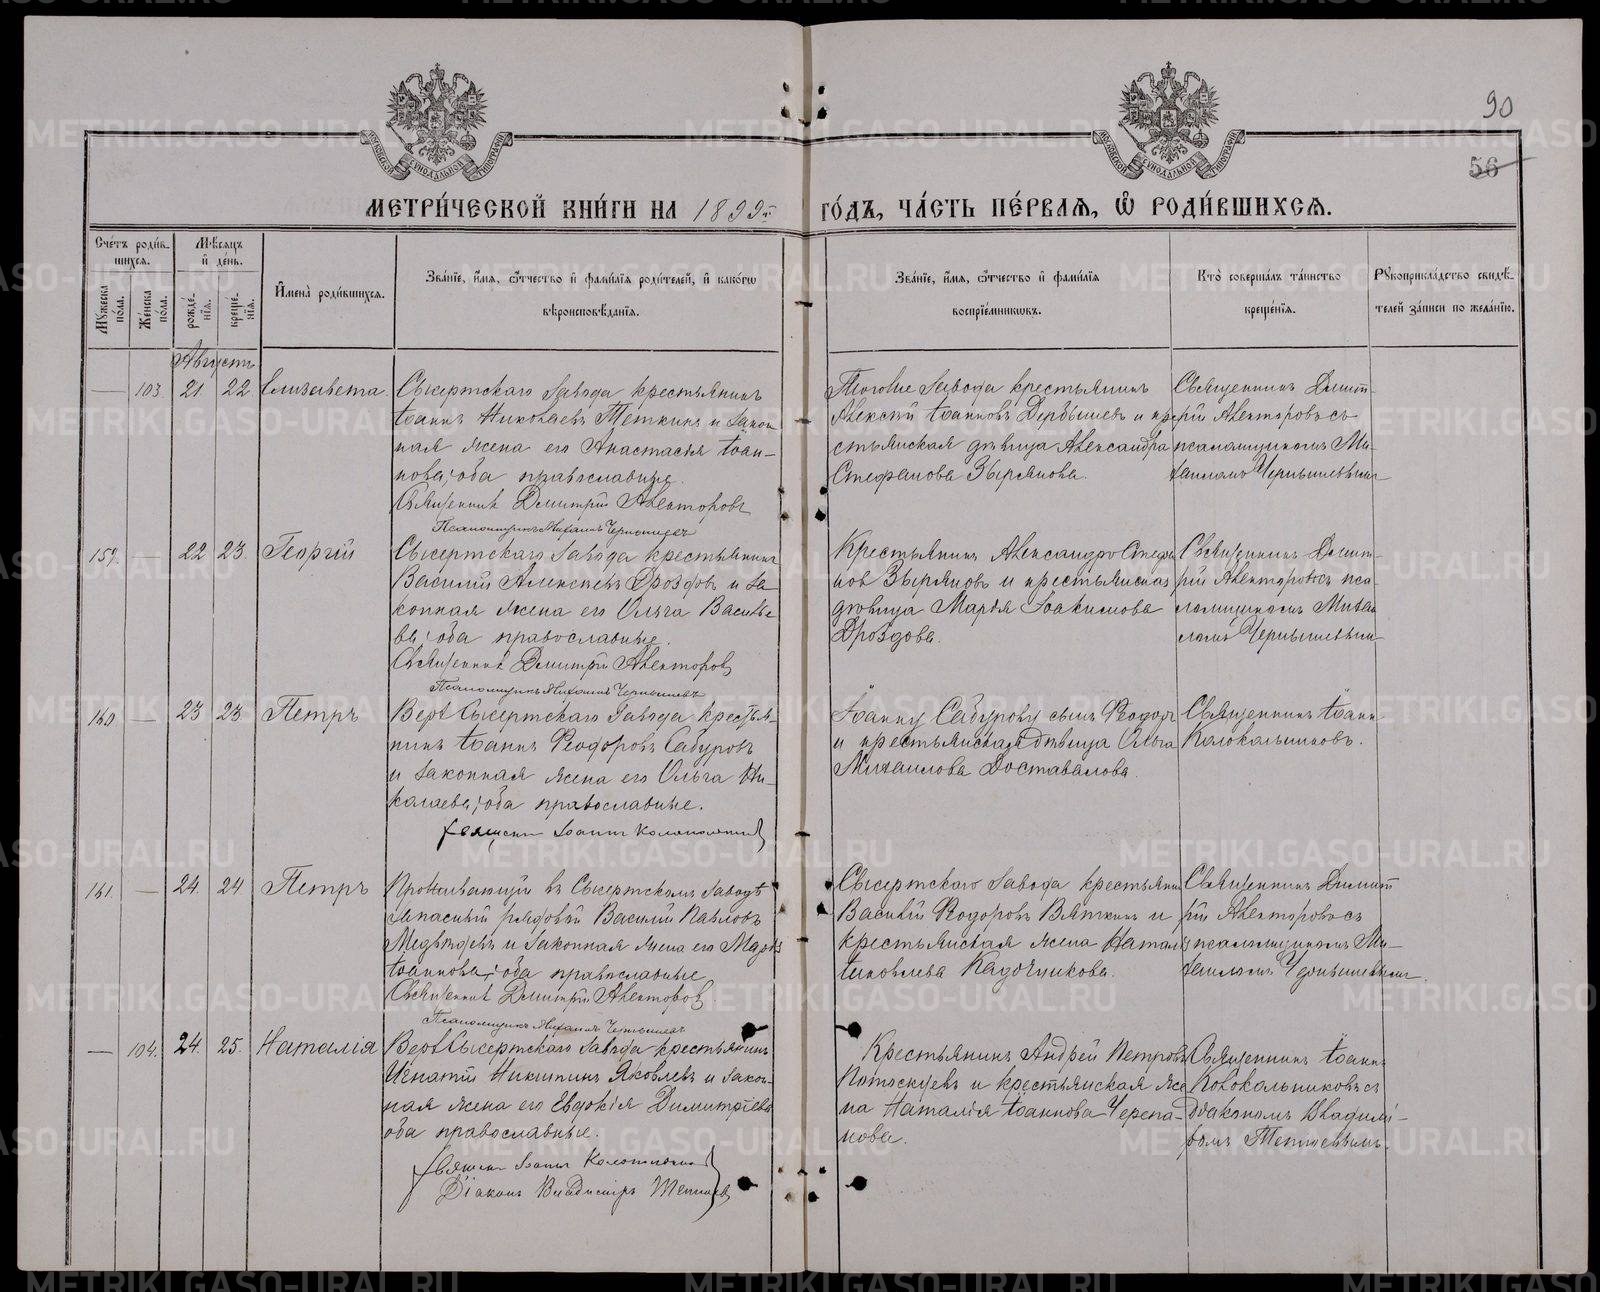 90
56
МЕТРИ́ЧЕСКОЙ КНИ́ГИ НА 1899 й ГО́ДЪ, ЧА́СТЬ ПЕ́РВАЯ, Ѽ РОДИ́ВШИХСЯ.
Сче́тъ роди́вшихся.
Му́жеска по́ла.
Же́нска по́ла.
Мѣ́сяцъ и҆ де́нь.
рожде́нїя.
креще́нїя.
И҆мена̀ роди́вшихся.
Зва́нїе, и҆́мя, ѻ҆́тчество и҆ фами́лїя роди́телей, и҆ како́гѡ
вѣроисповѣ́данїя.
Зва́нїе, и҆́мя, ѻ҆́тчество и҆ фами́лїя
воспрїе́мникѡвъ.
Кто̀ соверша́лъ та́инство
креще́нїя.
Рꙋкоприкла́дство свидѣ́-
телей за́писи по жела́нїю.
Августъ
— 103 21 22 Елизавета.
Сысертскаго завода крестьянинъ
Іоаннъ Николаевъ Теткинъ и закон
ная жена его Анастасія Іоан-
нова, оба православные.
Священникъ Димитрій Авекторовъ
Псаломщикъ Михаилъ Чернышевъ
Алексѣй Іоанновъ Дербышевъ и кре
стьянская дѣвица Александра
Стефанова Зырянова.
Священникъ Димит-
рій Авекторовъ съ
псаломщикомъ Ми-
хаиломъ Чернышевымъ
159. — 22 23. Георгій
Сысертскаго завода крестьянинъ
Василій Алексѣевъ Дроздовъ и за
конная жена его Ольга Василье
ва, оба православные.
Священникъ Димитрій Авекторовъ
Псаломщикъ Михаилъ Чернышевъ
Крестьянинъ Александръ Стефа
новъ Зыряновъ и крестьянская
дѣвица Марія Іоакимова
Дроздова.
Священникъ Димит-
рій Авекторовъ съ пса-
ломщикомъ Михаи
ломъ Чернышевымъ
160 — 23 23 Петръ
Верхъ Сысертскаго завода крестья-
нинъ Іоаннъ Ѳеодоровъ Сабуровъ
и законная жена его Ольга Ни-
колаева, оба православные.
Священникъ Іоаннъ Колокольниковъ
Іоаннъ Сабуровъ сынъ Ѳеодоръ
и крестьянская дѣвица Ольга
Михаилова Доставалова.
Священникъ Іоаннъ
Колокольниковъ.
161. — 24. 24 Петръ
Проживающій въ Сысертскомъ заводѣ
запасный рядовой Василій Павловъ
и законная жена его Марія
Іоаннова, оба православные
Священникъ Димитрій Авекторовъ.
Псаломщикъ Михаилъ Чернышевъ
Сысертскаго завода крестьянинъ
Василій Ѳеодоровъ Вяткинъ и
крестьянская жена Наталія
Іаковлева Кадочникова.
Священникъ Димит
рій Авекторовъ съ
псаломщикомъ Ми-
хаиломъ Чернышевымъ.
— 104. 24. 25. Наталія
Верхъ Сысертскаго завода крестьянинъ
Игнатій Никитинъ Яковлевъ и закон-
ная жена его Евдокія Димитріева
оба православные.
Священникъ Іоаннъ Колокольниковъ
Діаконъ Владиміръ Тепловъ
Крестьянинъ Андрей Петровъ
Потоскуевъ и крестьянская же
на Наталія Іоаннова Черепа-
нова.
Священникъ Іоаннъ
Колокольниковъ съ
Діакономъ Владимі-
ромъ Тепловымъ.